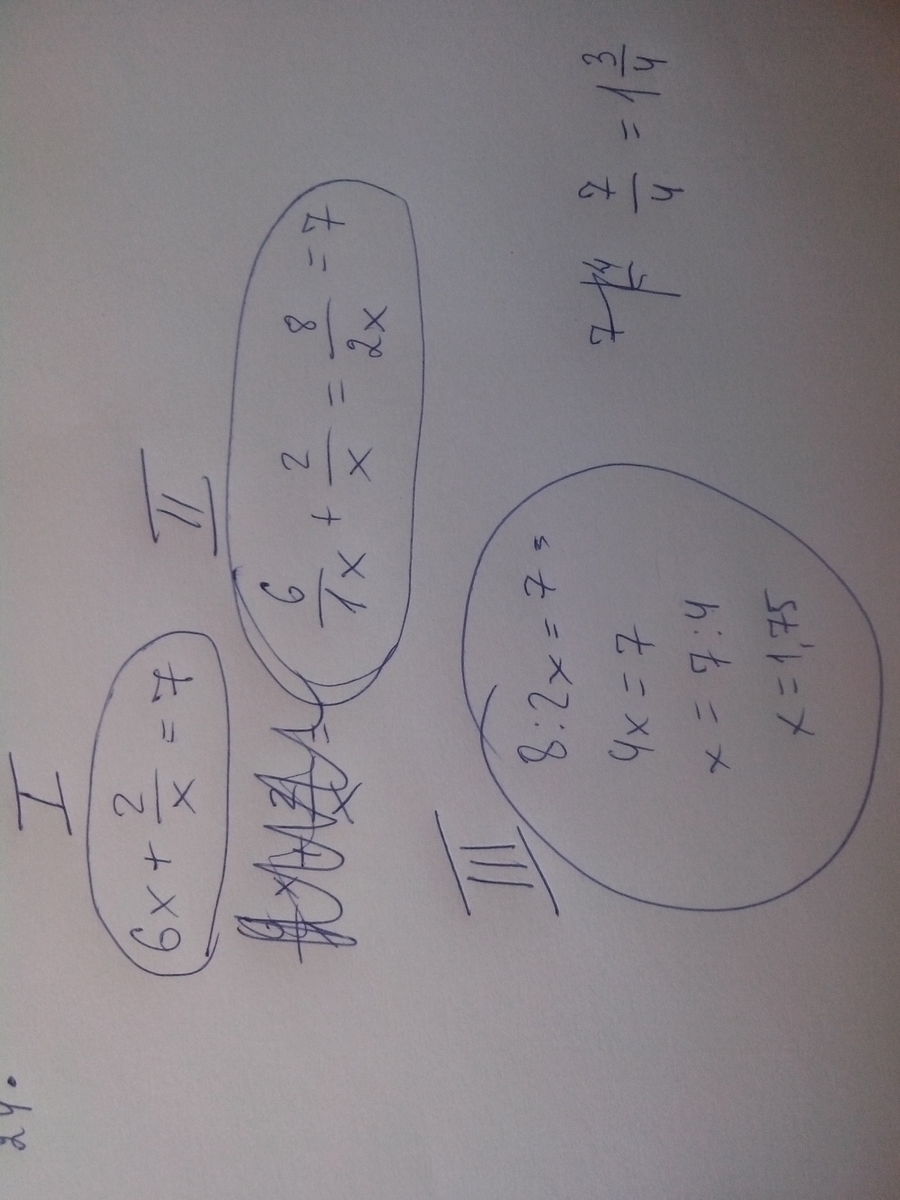 24.
I
6x + 2/x = 7
II
6/1x + 2/x = 8/2x = 7
III
8:2x = 7
4x = 7
x = 7:4
x = 1,75
7/4 = 1 3/4